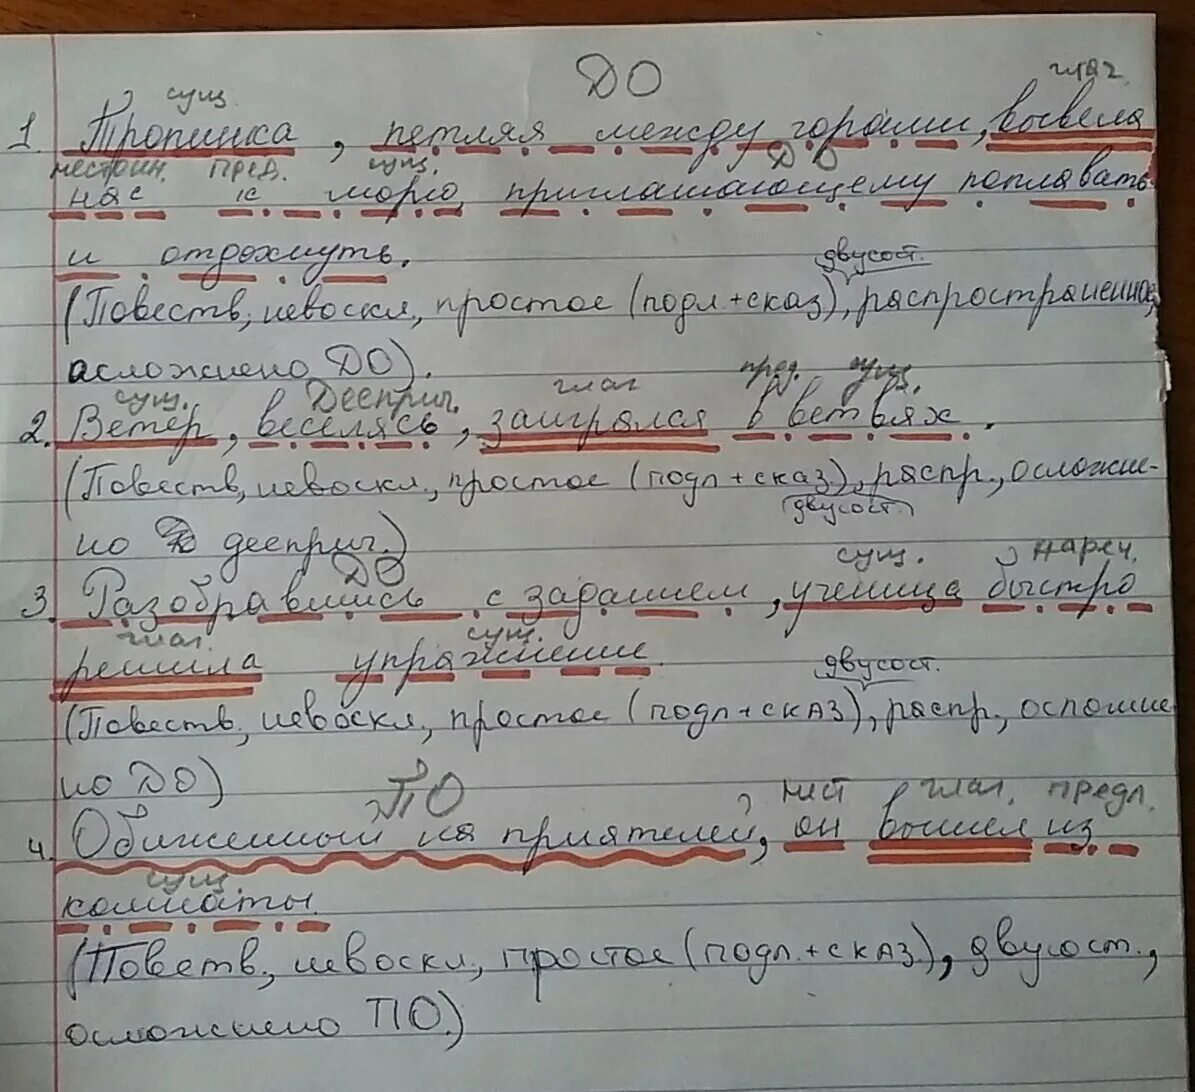 ДО
сущ. глаг.
1. Тропинка, петляя между горами, вывела
местоим. пред. сущ. ДО
нас к морю, приглашающему поплавать
и отдохнуть.
двусост.
(Повеств., невоскл., простое (подл.+сказ), распространенное,
асложнено ДО).
сущ. Дееприч. глаг пред. сущ.
2. Ветер, веселясь, заигрался в ветвях.
(Повеств., невоскл., простое (подл+сказ.), распр., осложне-
двусост.
но дееприч.)
ДО сущ. нареч.
3. Разобравшись с заданием, ученица быстро
глаг. сущ.
решила упражнение.
двусост.
(Повеств., невоскл., простое (подл+сказ), распр., осложне
но ДО)
ПО мест глаг. предл.
4. Обиженный на приятелей, он вышел из
сущ.
комнаты.
(Повеств., невоскл., простое (подл.+сказ.), двусост.,
осложнено ПО.)